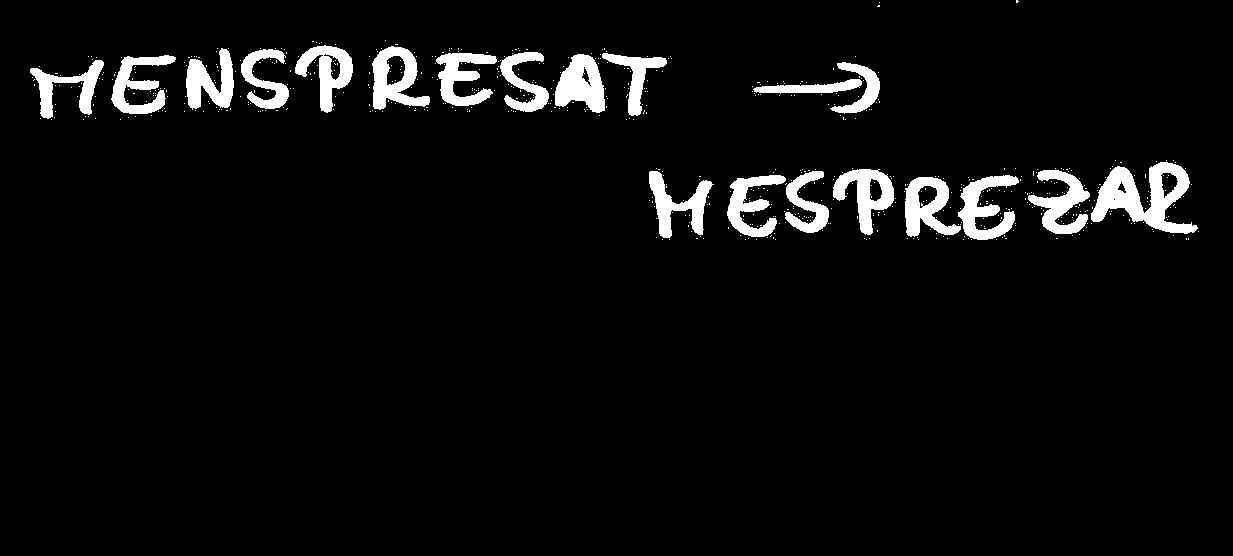 MENSPRESAT →
MESPREZAR